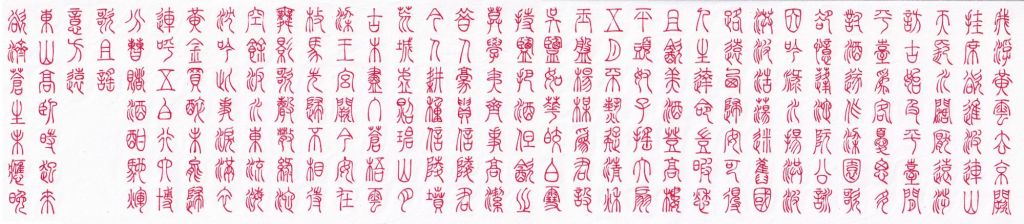 我浮黃雲去京闕
挂席欲進波連山
天長水闊厭遠涉
訪古始及平臺間
平臺為客憂思多
對酒遂作梁園歌
卻憶蓬池阮公詠
因吟淥水揚洪波
洪波浩蕩迷舊國
路遠西歸安可得
人生達命豈暇愁
且飲美酒登高樓
平頭奴子搖大扇
五月不熱疑清秋
玉盤楊梅為君設
吳鹽如華皎白雪
持鹽把酒但飲之
莫學夷齊事高潔
昔人豪貴信陵君
今人耕種信陵墳
荒城虛照碧山月
古木盡入蒼梧雲
梁王宮闕今安在
枚馬先歸不相待
舞影歌聲散綠池
空餘汴水東流海
沈吟此事淚滿衣
黃金買醉未能歸
連呼五白行六博
分曹賭酒酣馳輝
歌且謠
意方遠
東山高臥時起來
欲濟蒼生未應晚